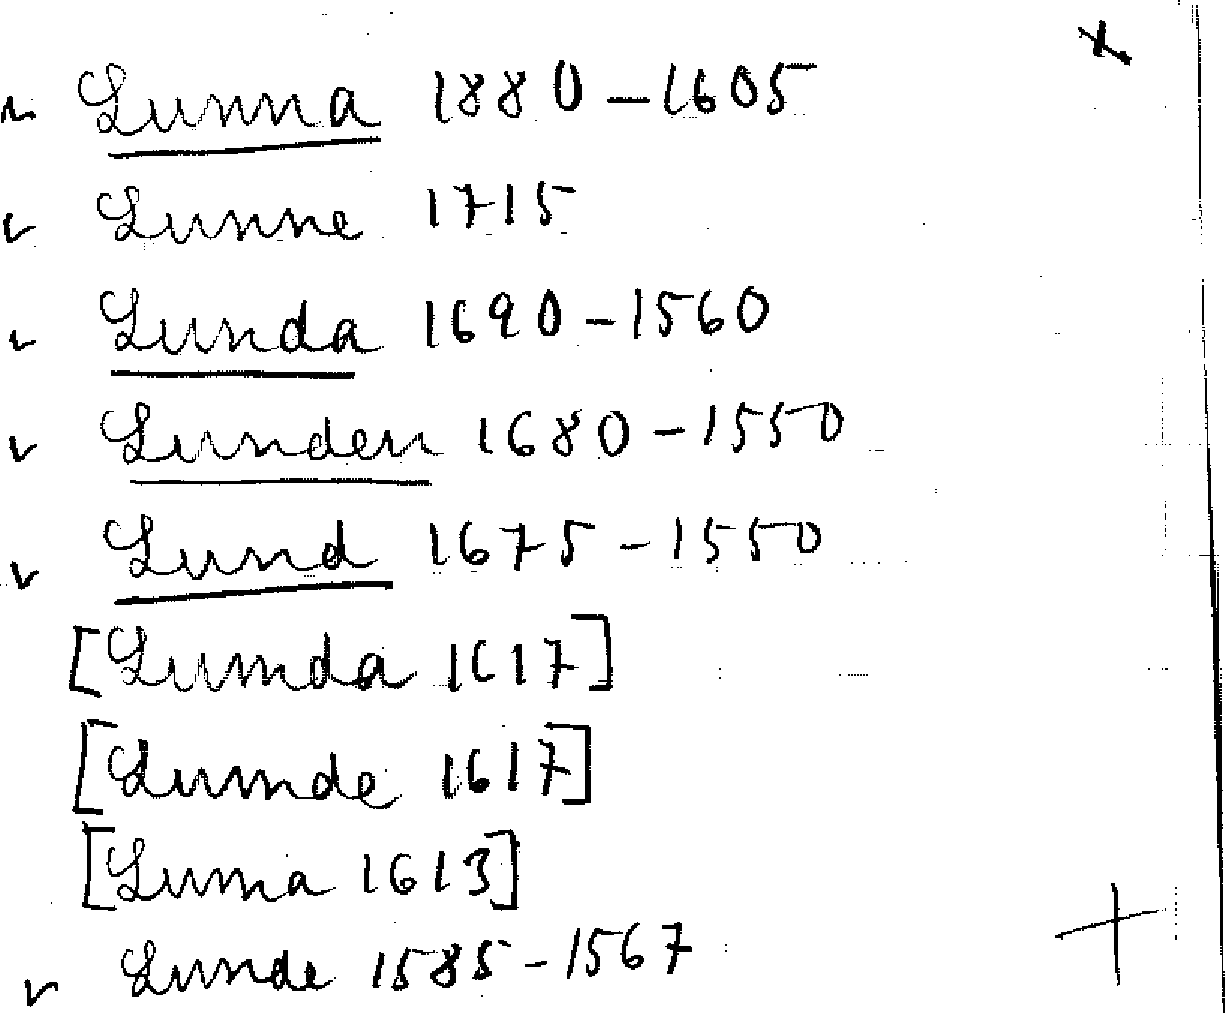 v Lunna 1880-1605
v Lunne 1715
v Lunda 1690-1560
v Lunden 1680-1550
v Lund 1675-1550
[Lumda 1617]
[Lumde 1617]
[Luma 1613]
v Lunde 1585-1567